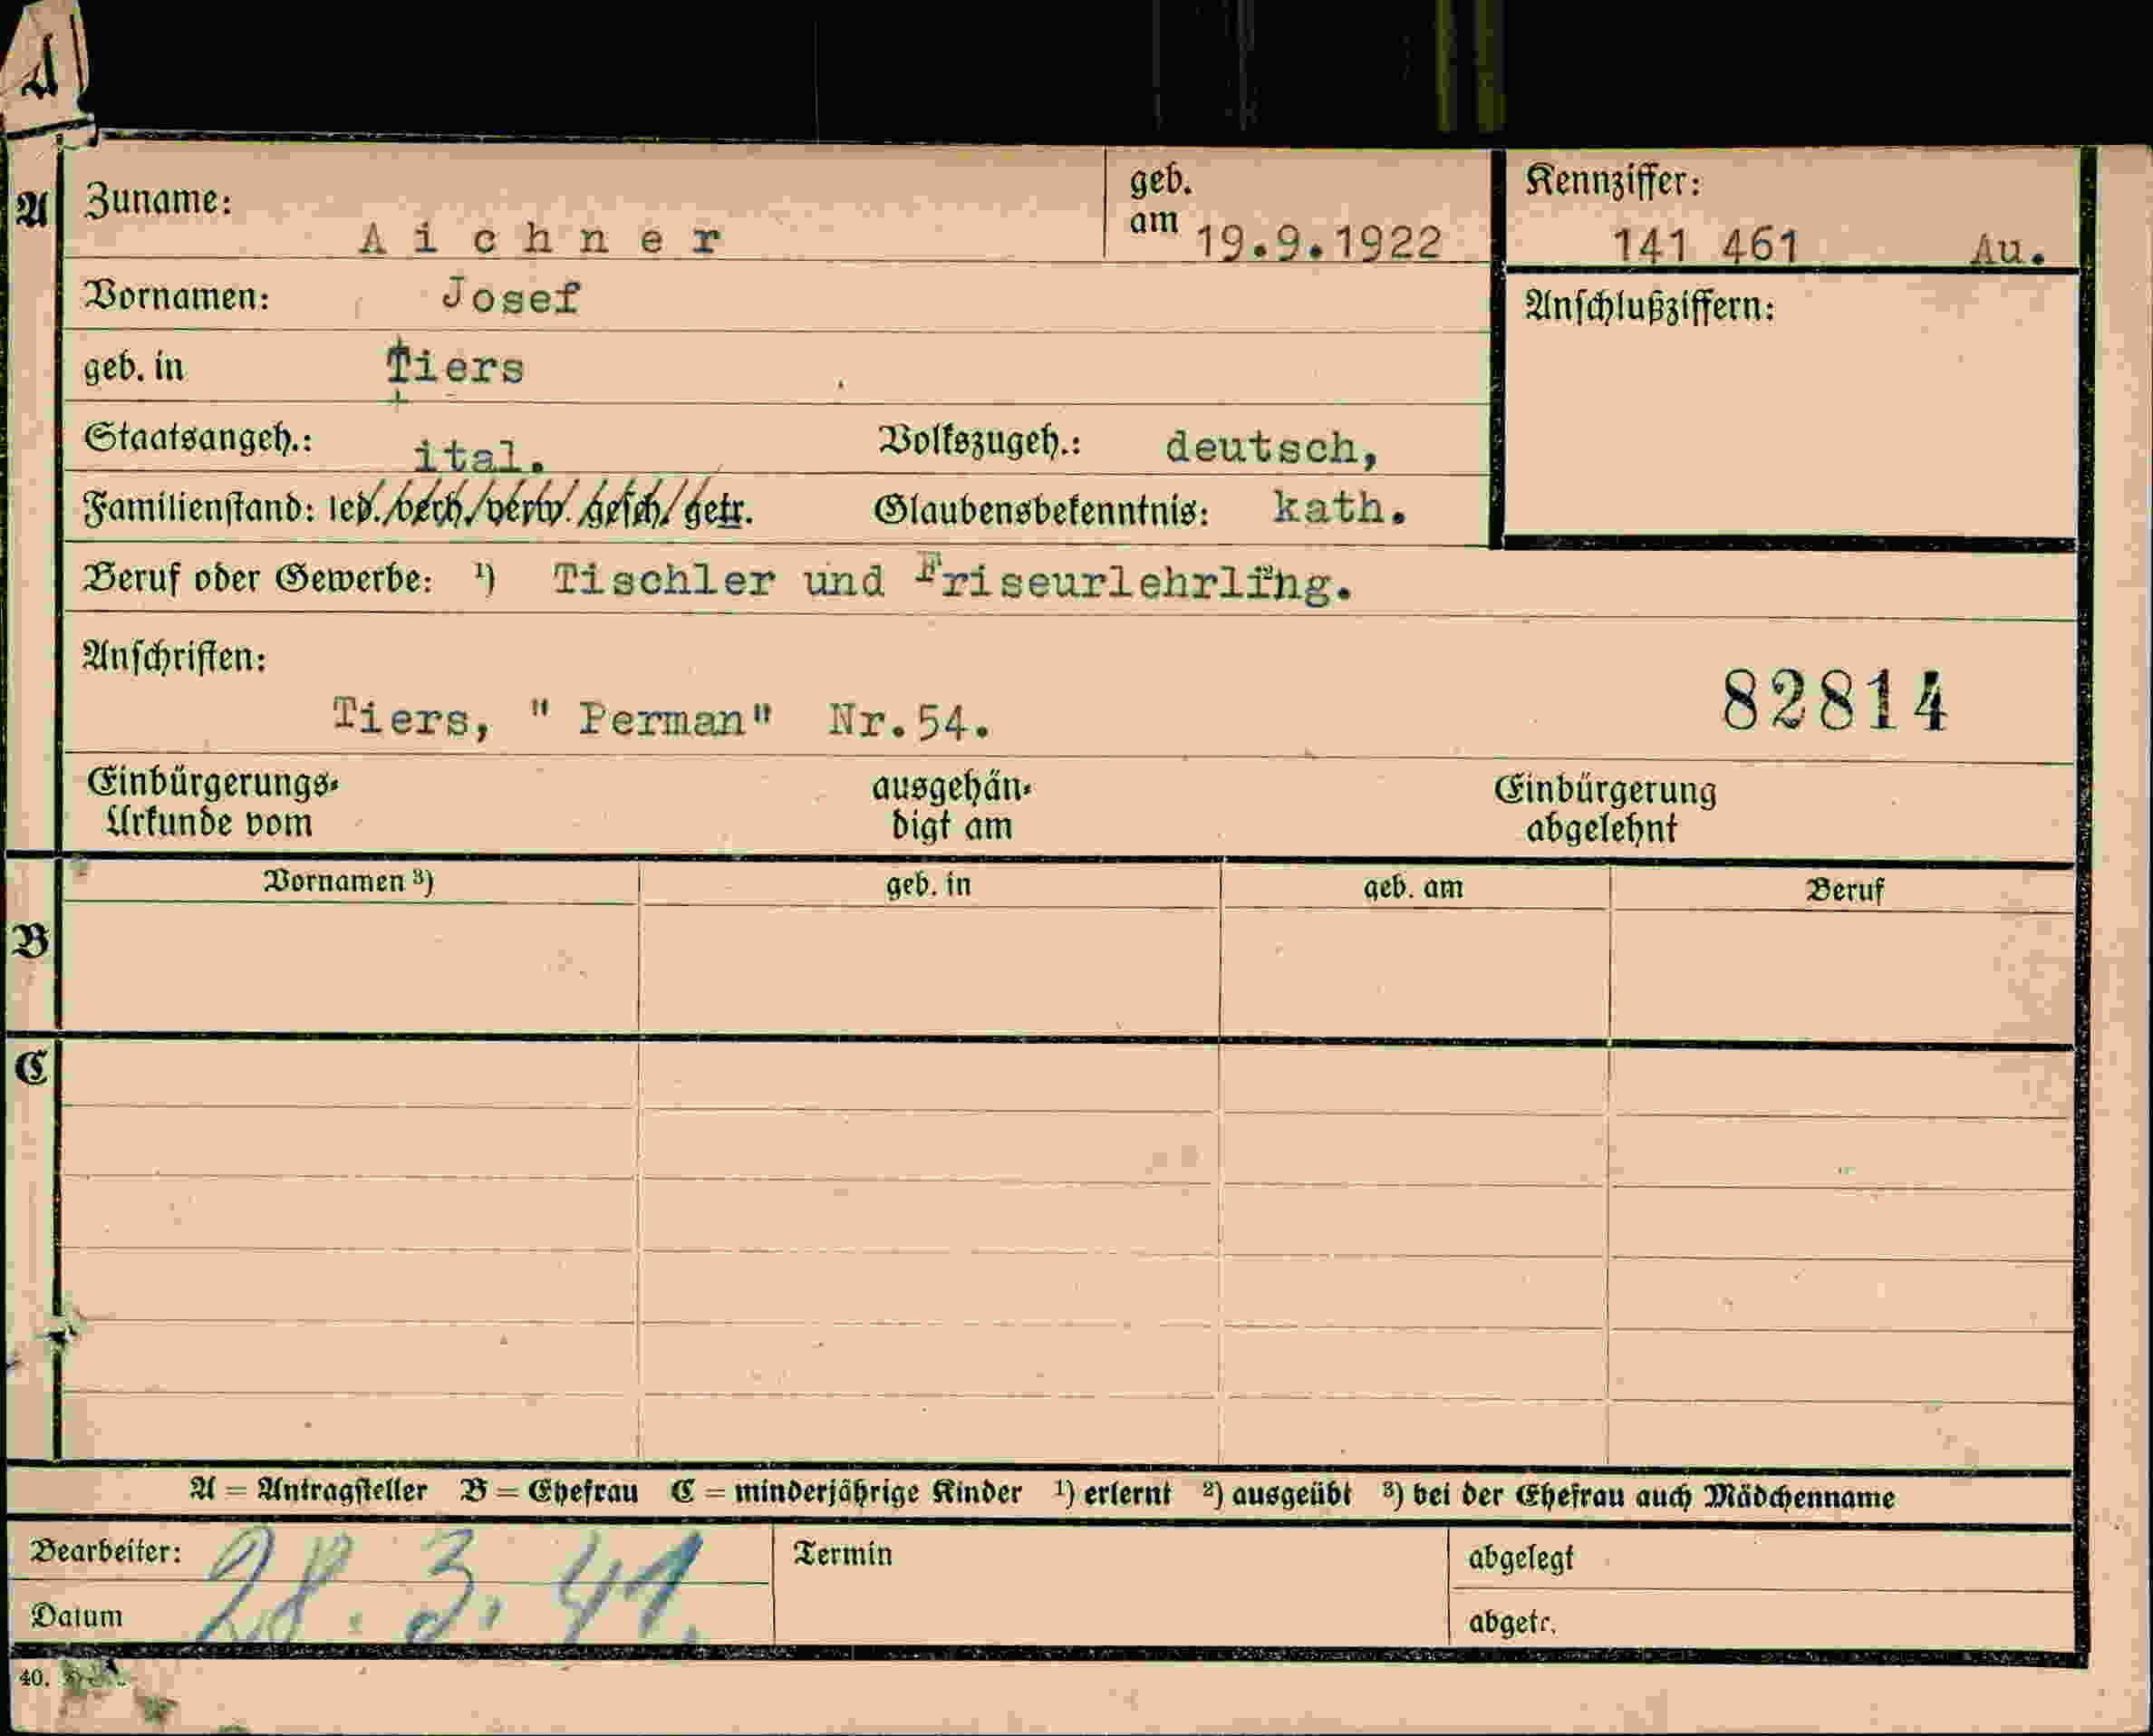 A
A Zuname: Aichner geb. am 19.9.1922 Kennziffer: 141 461 Au.
Vornamen: Josef Anschlußziffern:
geb. in Tiers
Staatsangeh.: ital. Volkszugeh.: deutsch,
Familienstand: led./verh./verw./gesch/getr. Glaubensbekenntnis: kath.
Beruf oder Gewerbe: ¹) Tischler und Friseurlehrling.
Anschriften:
Tiers, " Perman" Nr.54. 82814
Einbürgerungs-Urkunde vom ausgehän-digt am Einbürgerung abgelehnt
Vornamen ³) geb. in geb. am Beruf
B
C
A = Antragsteller B = Ehefrau C = minderjährige Kinder ¹) erlernt ²) ausgeübt ³) bei der Ehefrau auch Mädchenname
Bearbeiter: Termin abgelegt
Datum 28. 3. 41. abgetr.
40.